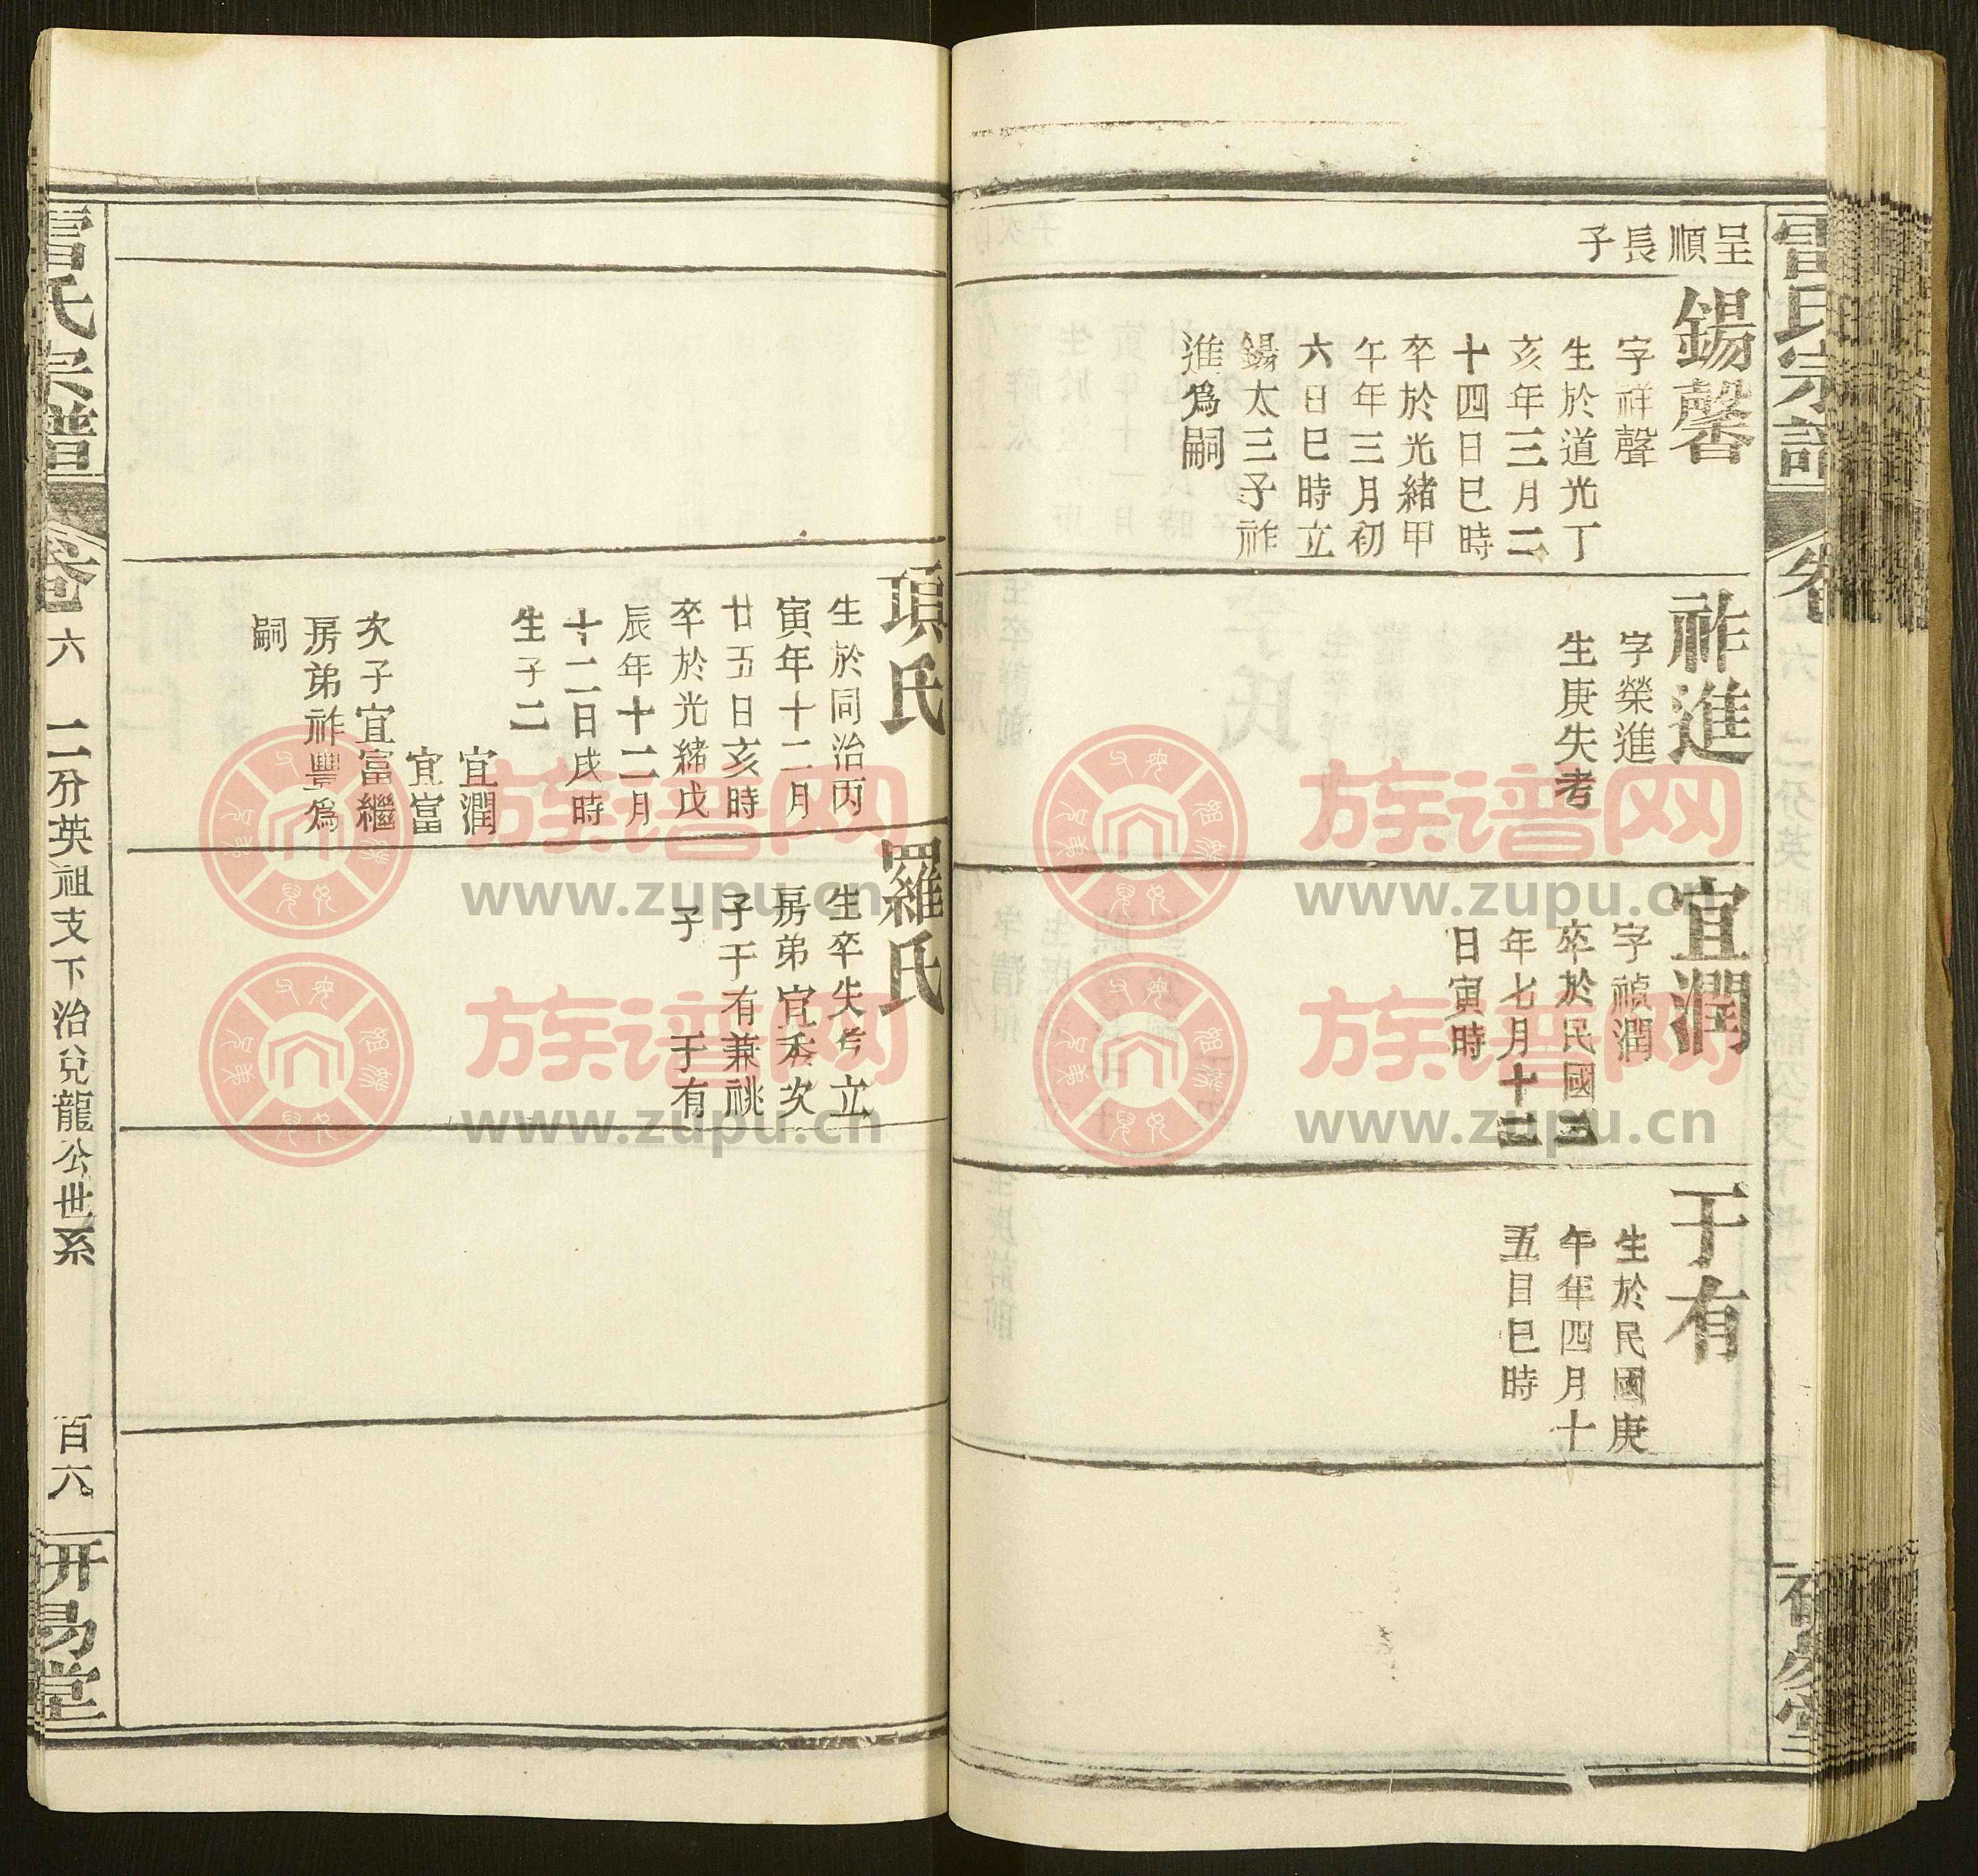 雷氏宗譜
卷
呈順長子
錫馨
字祥聲
生於道光丁
亥年三月二
十四日巳時
卒於光緒甲
午年三月初
六日巳時立
錫太三子祚
進爲嗣
祚進
字榮進
生庚失考
宜潤
字禎潤
卒於民國三
年七月十二
日寅時
于有
生於民國庚
午年四月十
五日巳時
項氏
生於同治丙
寅年十二月
廿五日亥時
卒於光緒戊
辰年十二月
十二日戌時
生子二
宜潤
宜富
次子宜富繼
房弟祚豐爲
嗣
羅氏
生卒失考 立
房弟宜秀次
子于有兼祧
子 于有
雷氏宗譜
卷六 二分英祖支下治兌龍公世系 百六
研易堂
族谱网
www.zupu.cn
族谱网
www.zupu.cn
族谱网
www.zupu.cn
族谱网
www.zupu.cn